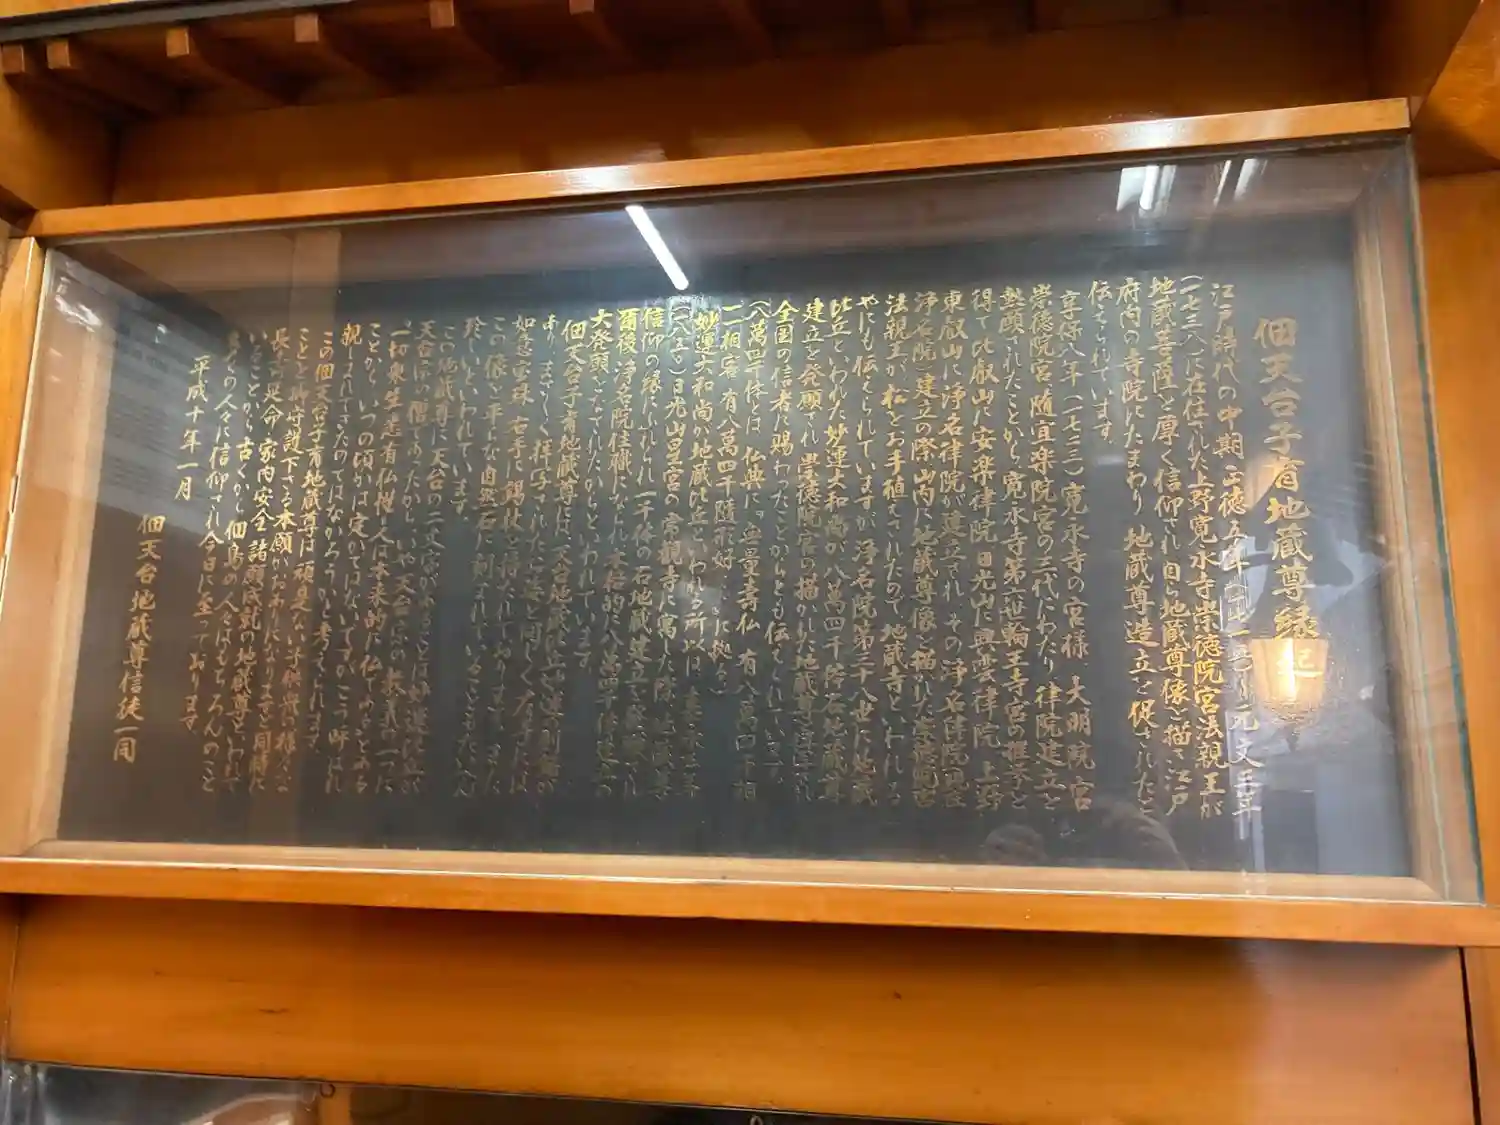 佃天台子育地蔵尊縁起
江戸時代の中期 正徳五年(一七一五)〜元文三年
(一七三八)に在住された上野寛永寺崇徳院宮法親王が
地蔵菩薩を厚く信仰され自ら地蔵尊像を描き江戸
府内の寺院にたまわり 地蔵尊造立を促されたと
伝えられています。
享保八年(一七二三)寛永寺の宮様、大明院宮
崇徳院宮、随宜楽院宮の三代にわたり、律院建立を
懇願されたことから、寛永寺第六世輪王寺宮の推挙を
得て比叡山に安楽律院、日光山に興雲律院、上野
東叡山に浄名律院が建立され、その浄名律院(現在
浄名院)建立の際、山内に地蔵尊像を描れた崇徳院宮
法親王が、松をお手植えされたので、地蔵寺といわれる
やにも伝えられていますが、浄名院第三十八世に地蔵
比丘といわれた妙運大和尚が、八萬四千体石地蔵尊
建立を発願され、崇徳院宮の描かれた地蔵尊を
全国の信者に賜わったことからとも伝えられています。
(八萬四千体とは、仏典に。無量寿仏 有八萬四千相
一一相 有八萬四千随形好 に拠る)
妙運大和尚が地蔵比丘といわれる所以は
日光山星宮の常観寺に寓した際、地蔵尊
信仰の縁にふれられ、一千体の石地蔵建立を発願され
爾後、浄名院住職になられ本格的に八萬四千体建立の
大発願となされたからといわれています。
佃天台子育地蔵尊には、天台地蔵比丘妙運の
あり、まさしく拝写されたお姿と同じく左手に
如意宝珠、右手に錫杖を持たれております。また
この像を平らな自然石に刻まれていることもたいへん
珍しいといわれています。
この地蔵尊に天台の二文字があることは妙運比丘が
天台宗の僧であったから、いや天台宗の教義の一つに
一切衆生悉有仏性、人は本来的に仏であるとある
ことから、いつの頃かは定かではないですが、こう呼ばれ
親しまれてきたのではなかろうかと考えられます。
この佃天台子育地蔵尊は頑是ない子供達の様々な
ことを御守護下さる本願がおありになりますと同時に
長寿延命、家内安全、諸願成就の地蔵尊といわれて
いることから、古くから佃島の人々はもちろんのこと
多くの人々に信仰され今日に至っております。
平成十年一月
佃天台地蔵尊信徒一同